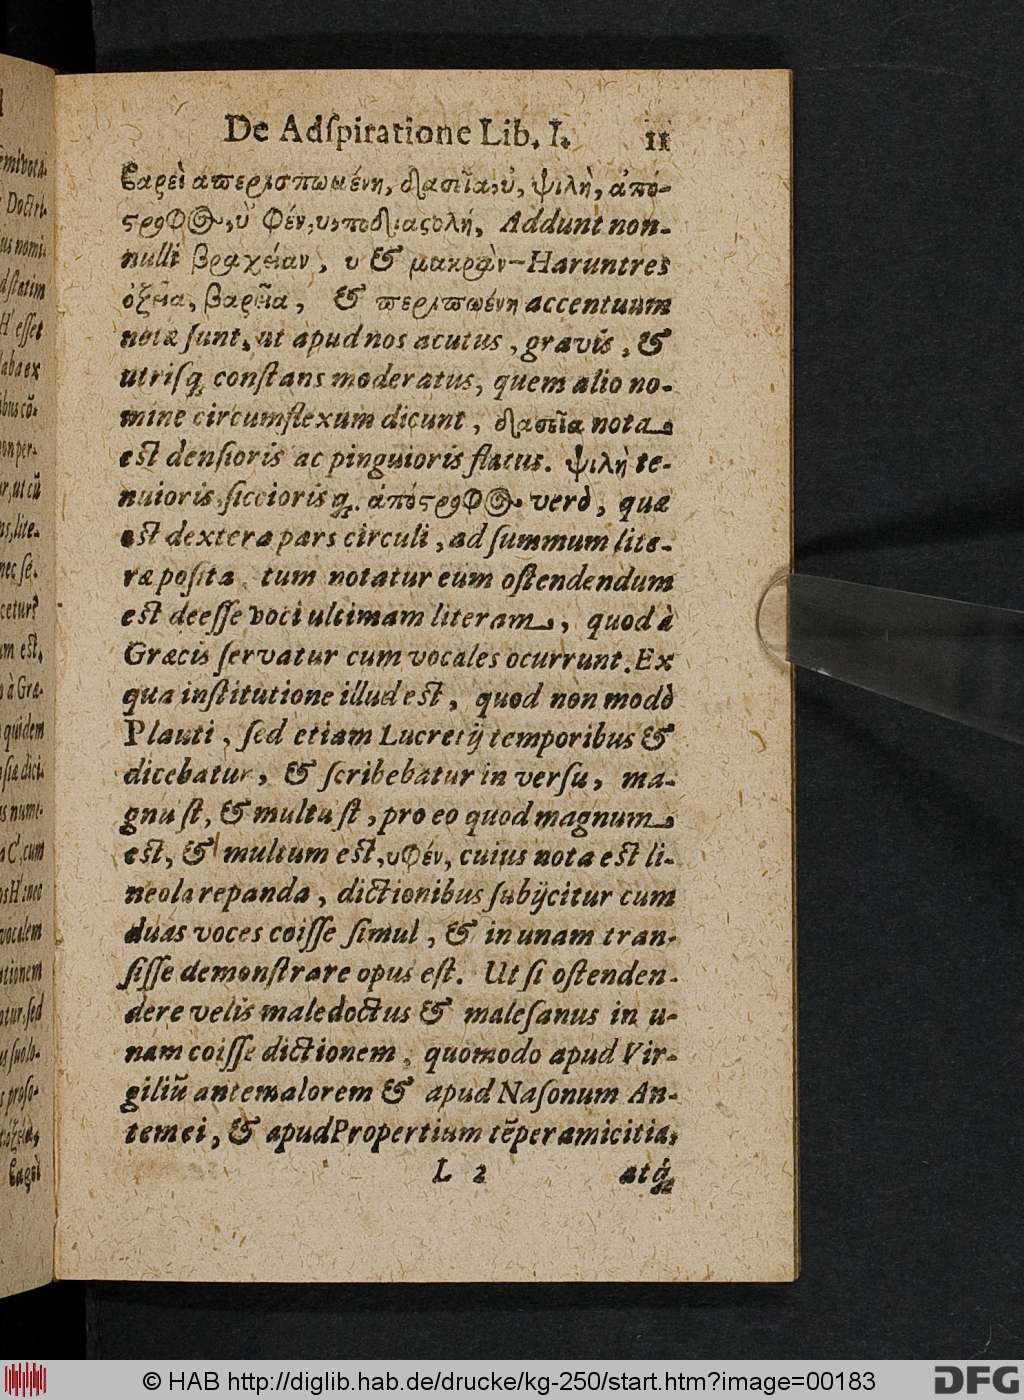 De Adſpiratione Lib. I. 11
βαρεὶ ἀπερισπωμένη, δασεῖα, ὐ, ψιλὴ, ἀπό-
στροφος, ὐ φέν, υ, ποδιαστολή, Addunt non-
nulli βραχείαν, υ & μακρὰν — Harum tres
ὀξεῖα, βαρεῖα, & περιπωένη accentuum
notæ ſunt, ut apud nos acutus, gravis, &
utriſq; conſtans moderatus, quem alio no-
mine circumflexum dicunt, δασεῖα nota
est denſioris ac pinguioris flatus. ψιλὴ te-
nuioris, ſiccioris q;. ἀπόστροφος verò, quæ
est dextera pars circuli, ad ſummum lite-
ræ poſita tum notatur eum oſtendendum
est deeſſe voci ultimam literam, quod à
Græcis ſervatur cum vocales ocurrunt. Ex
qua inſtitutione illud est, quod non modò
Plauti, ſed etiam Lucretij temporibus &
dicebatur, & ſcribebatur in verſu, ma-
gnu ſt, & multu ſt, pro eo quod magnum
est, & multum est, υφέν, cuius nota est li-
neola repanda, dictionibus ſubijcitur cum
duas voces coiſſe ſimul, & in unam tran-
ſiſſe demonſtrare opus eſt. Ut ſi oſtenden-
dere velis maledoctus & maleſanus in u-
nam coiſſe dictionem, quomodo apud Vir-
giliũ antemalorem & apud Naſonum An-
temei, & apud Propertium tẽper amicitia,
L 2 atq;
© HAB http://diglib.hab.de/drucke/kg-250/start.htm?image=00183
DFG